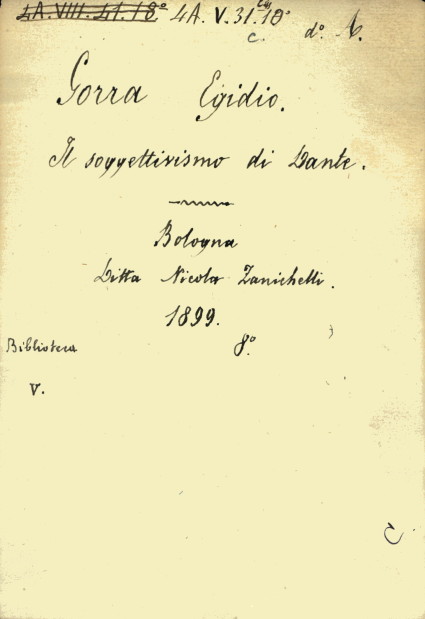 4A. VIII. 41. 18° 4A. V. 31. 18°
c.
Gorra Egidio.
Il soggettivismo di Dante.
Bologna
Ditta Nicola Zanichelli.
1899.
Biblioteca 8°.
V.